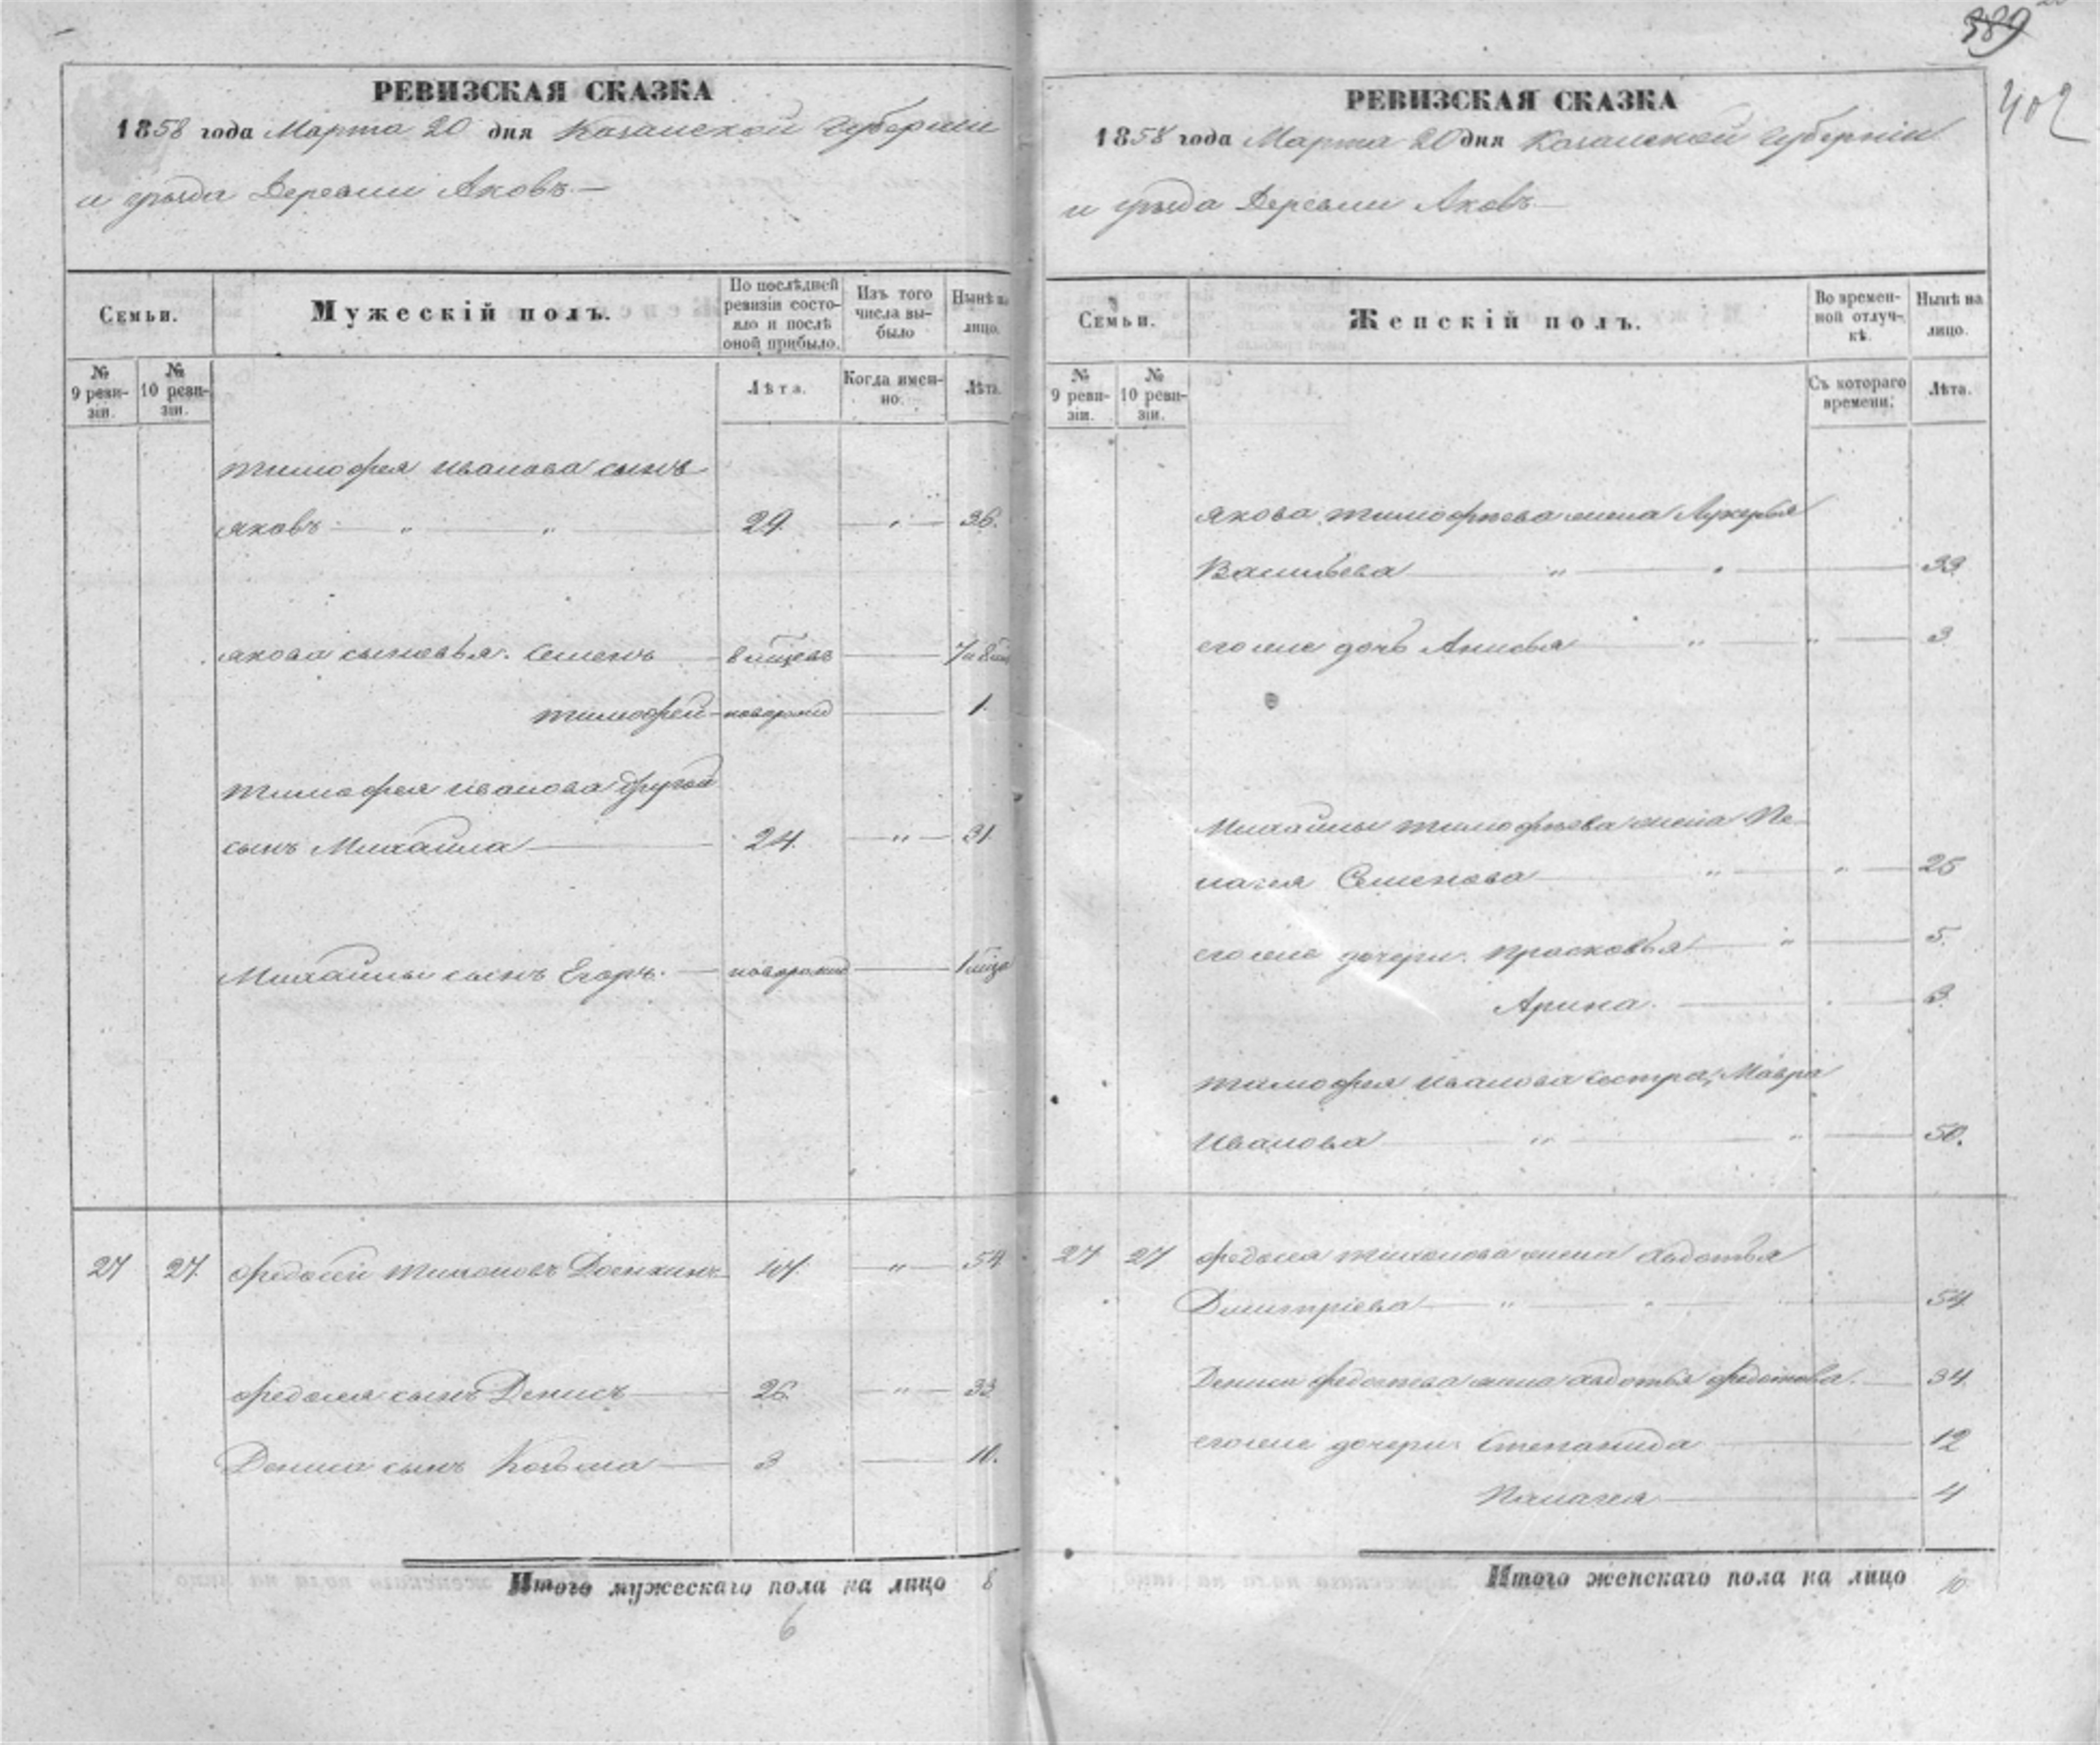 389
402
РЕВИЗСКАЯ СКАЗКА
1858 года Марта 20 дня Казанской Губернии
и уезда Деревни Аковъ
Семьи.
Мужескій полъ.
По послѣдней ревизіи состояло и послѣ оной прибыло.
Изъ того числа выбыло
Нынѣ на лицо.
№ 9 ревизіи.
№ 10 ревизіи.
Лѣта.
Когда именно.
Лѣта.
Тимофея Иванова сынъ
Яковъ 29. 36.
Якова сыновья. Семенъ 8 мѣсяцъ 7
Тимофей новорожд 1.
Тимофея Иванова другой
сынъ Михайла 24. 31.
Михайлы сынъ Егоръ. новорожд
27 27. Федосей Тихоновъ 47. 54
Федосея сынъ Денисъ 26. 33
Дениса сынъ Козьма 3 10.
Итого мужескаго пола на лицо 8
6
РЕВИЗСКАЯ СКАЗКА
1858 года Марта 20 дня Казанской Губерніи
и уезда Деревни Аковъ
Семьи.
Женскій полъ.
Во временной отлучкѣ.
Нынѣ на лицо.
№ 9 ревизіи.
№ 10 ревизіи.
Съ котораго времени.
Лѣта.
Якова Тимофеева жена Лукерья
Васильева 33.
его же дочь Анисья 3
Михайлы Тимофеева жена Пе-
лагея Семенова 25
его же дочери. Прасковья 5.
Арина. 3.
Тимофея Иванова сестра, Мавра
Иванова 50.
27 27 Федосея Тихонова жена Авдотья
Димитріева 54
Дениса Федосеева жена Авдотья Федотова. 34
его же дочери Степанида 12
Пелагея 4
Итого женскаго пола на лицо 10